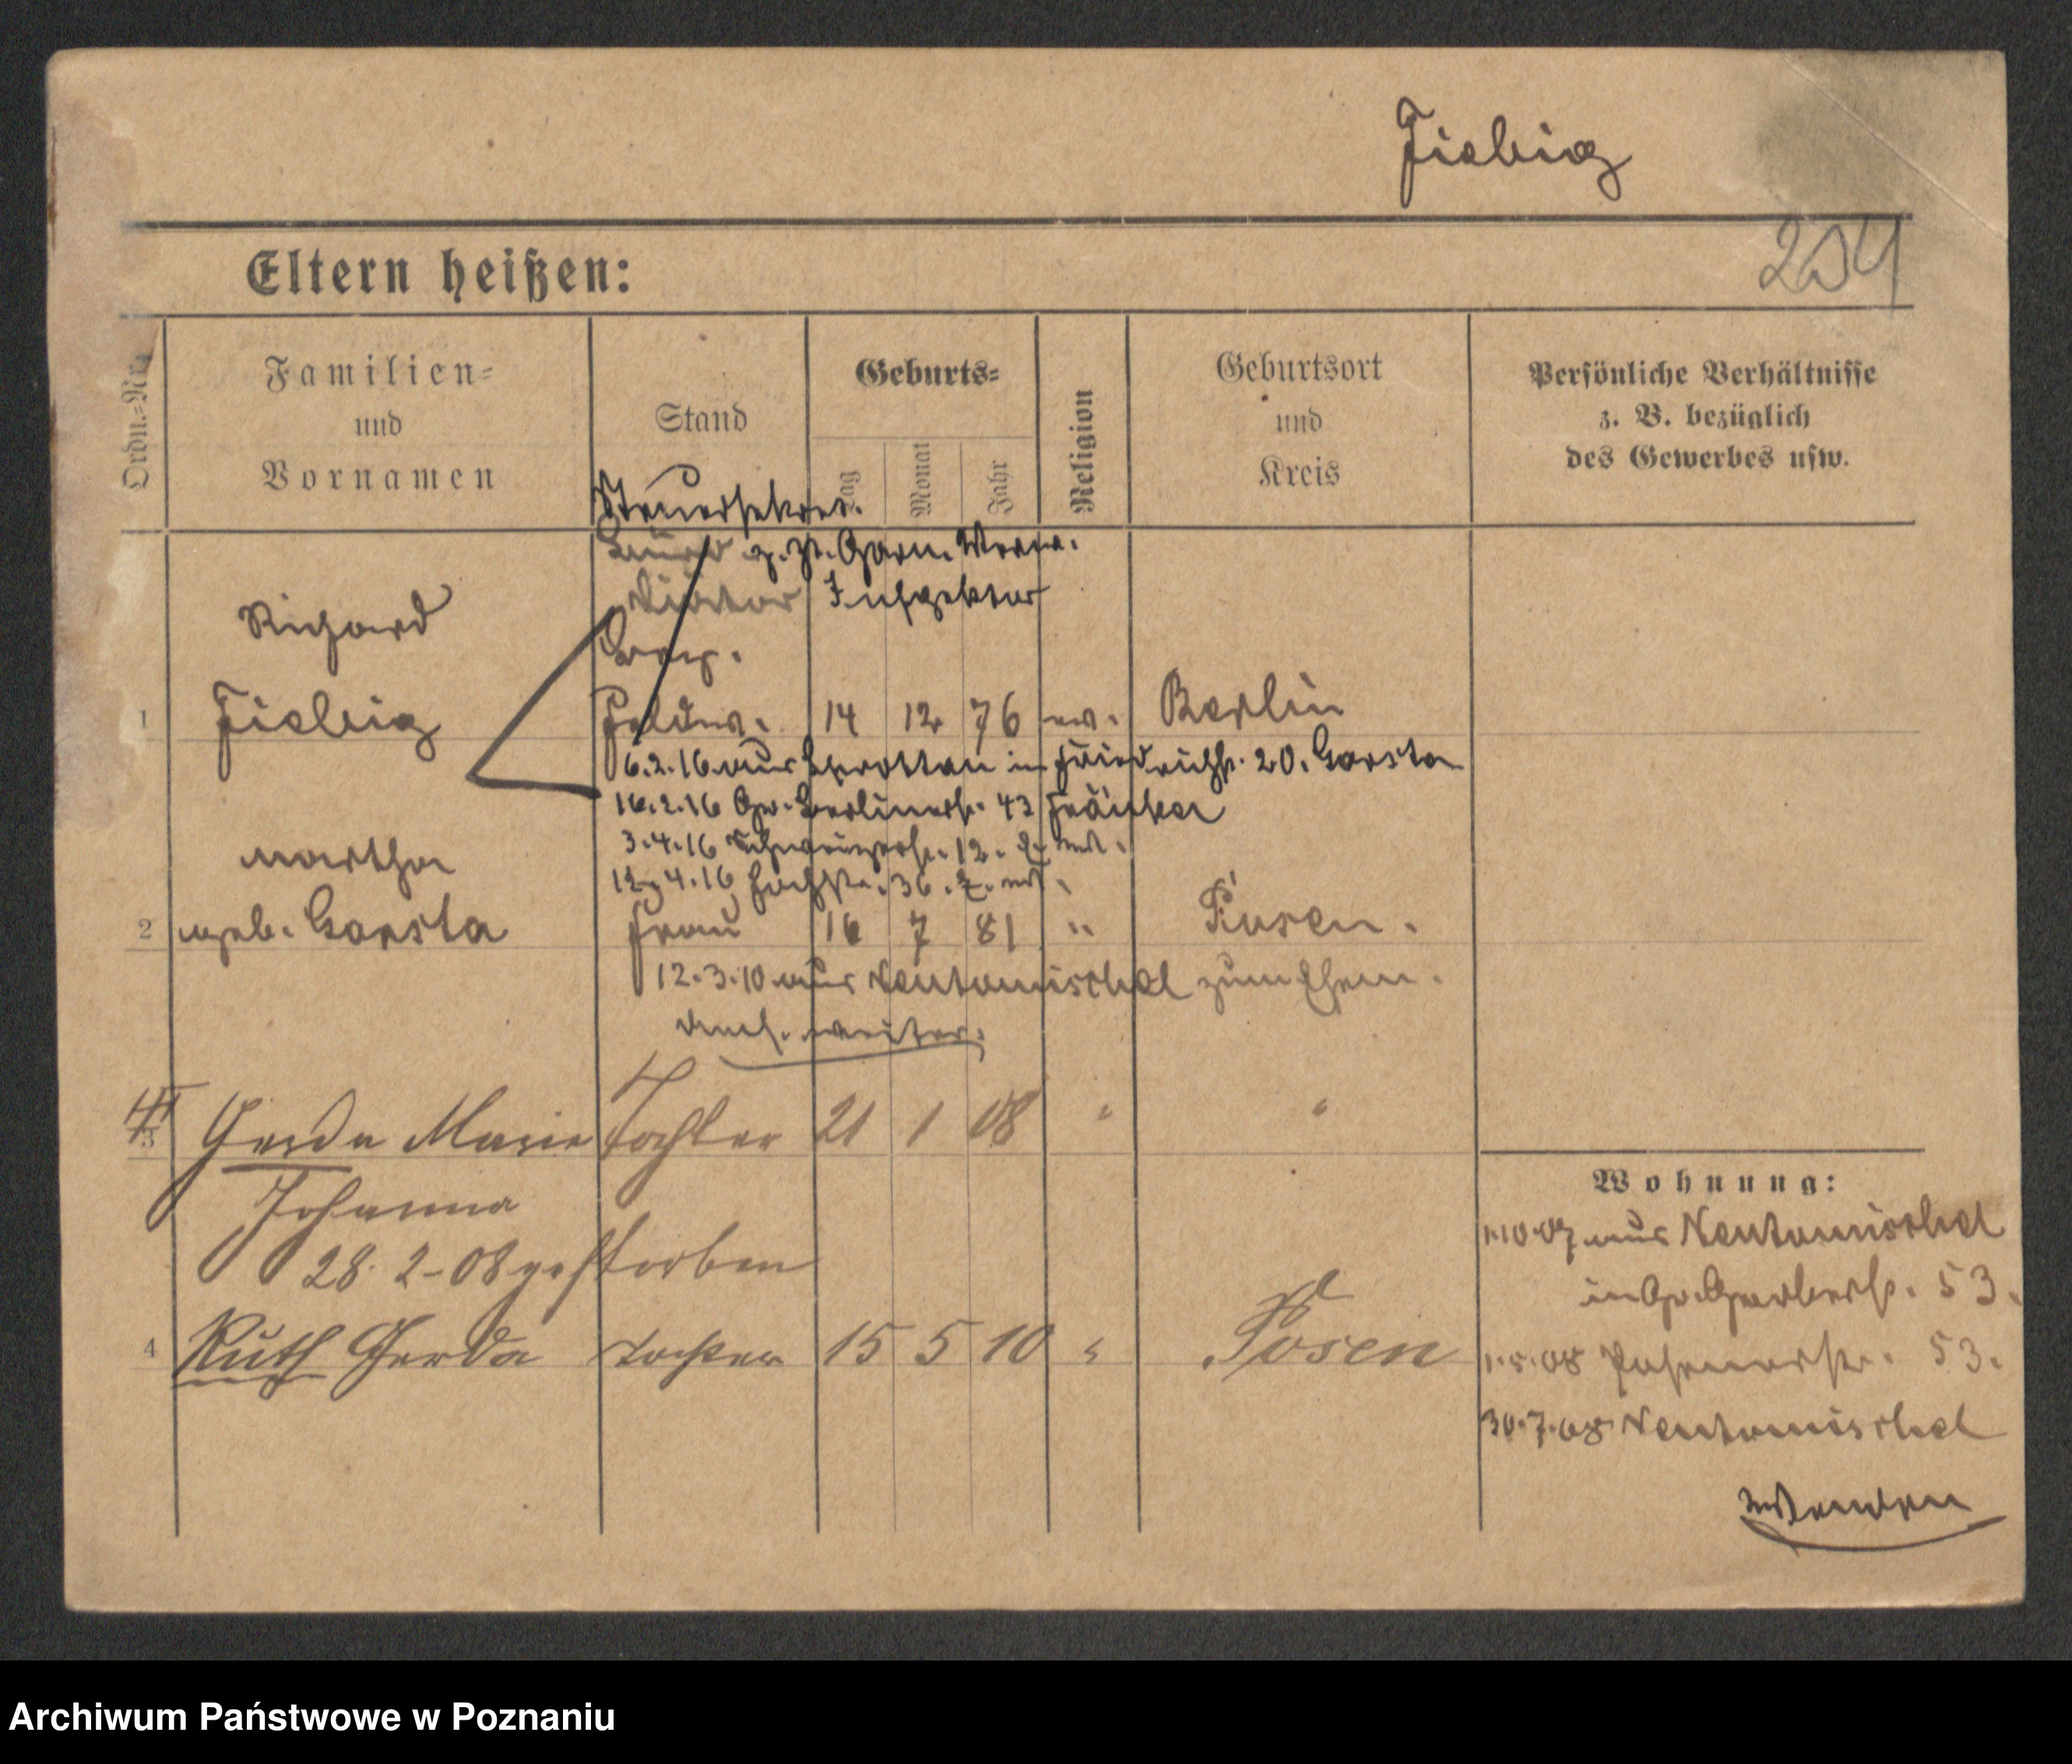 Fiebig
Eltern heißen:
254
Ordn.=Nr.
Familien=
und
Vornamen
Stand
Geburts=
Tag
Monat
Jahr
Religion
Geburtsort
und
Kreis
Persönliche Verhältnisse
z. B. bezüglich
des Gewerbes usw.
Steuersekret.
z. Zt. Garn. Verw.
Diätar Inspektor
Richard
1 Fiebig Feldw. 14 12 76 ev. Berlin
6.2.16 aus Sprottau in Friedrichstr. 20. Garsta
16.2.16 Gr. Berlinerstr. 43 Fränkel
3.4.16 12.
12.4.16 36.
Martha
2 geb. Garsta Frau 16 7 81 " Posen.
12.3.10 aus Neutomischel zum Ehem.
weiter.
3 Gerda Marie Tochter 21 1 08 " "
Johanna
28.2-08 gestorben
4 Ruth Gerda Tochter 15 5 10 " Posen
Wohnung:
1.10.07 aus Neutomischel
in Gr. Gerberstr. 53.
1.5.08 Posenerstr. 53.
30.7.08 Neutomischel
Wenden
Archiwum Państwowe w Poznaniu